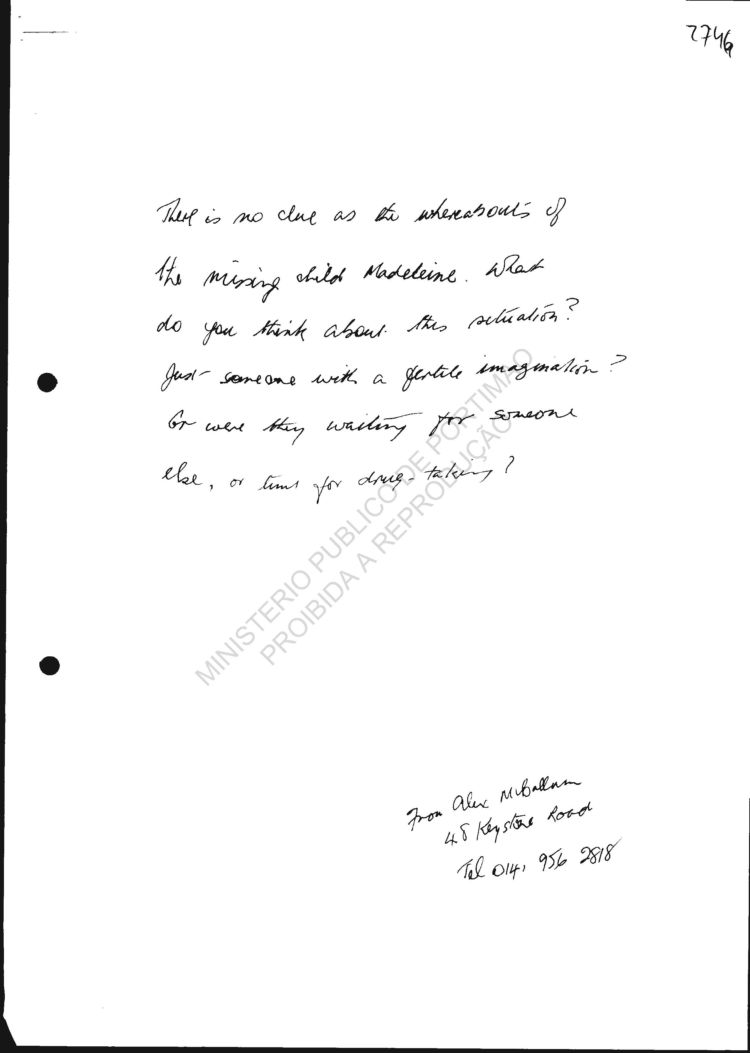 2746
There is no clue as the whereabouts of
the missing child Madeleine. What
do you think about this situation?
Just someone with a fertile imagination?
Or were they waiting for someone
else, or time for drug-taking?
MINISTERIO PUBLICO DE PORTIMAO
PROIBIDA A REPRODUÇÃO
From Alex
48 Keystone Road
Tel 0141 956 2818